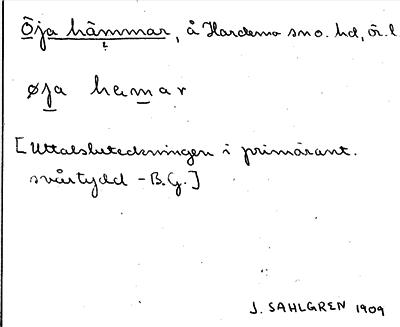 Öja hämmar, å Hardemo sn o. hd, ör. l
øja hemar
[Uttalsbeteckningen i primärant.
svårtydd - B.G.]
J. SAHLGREN 1909